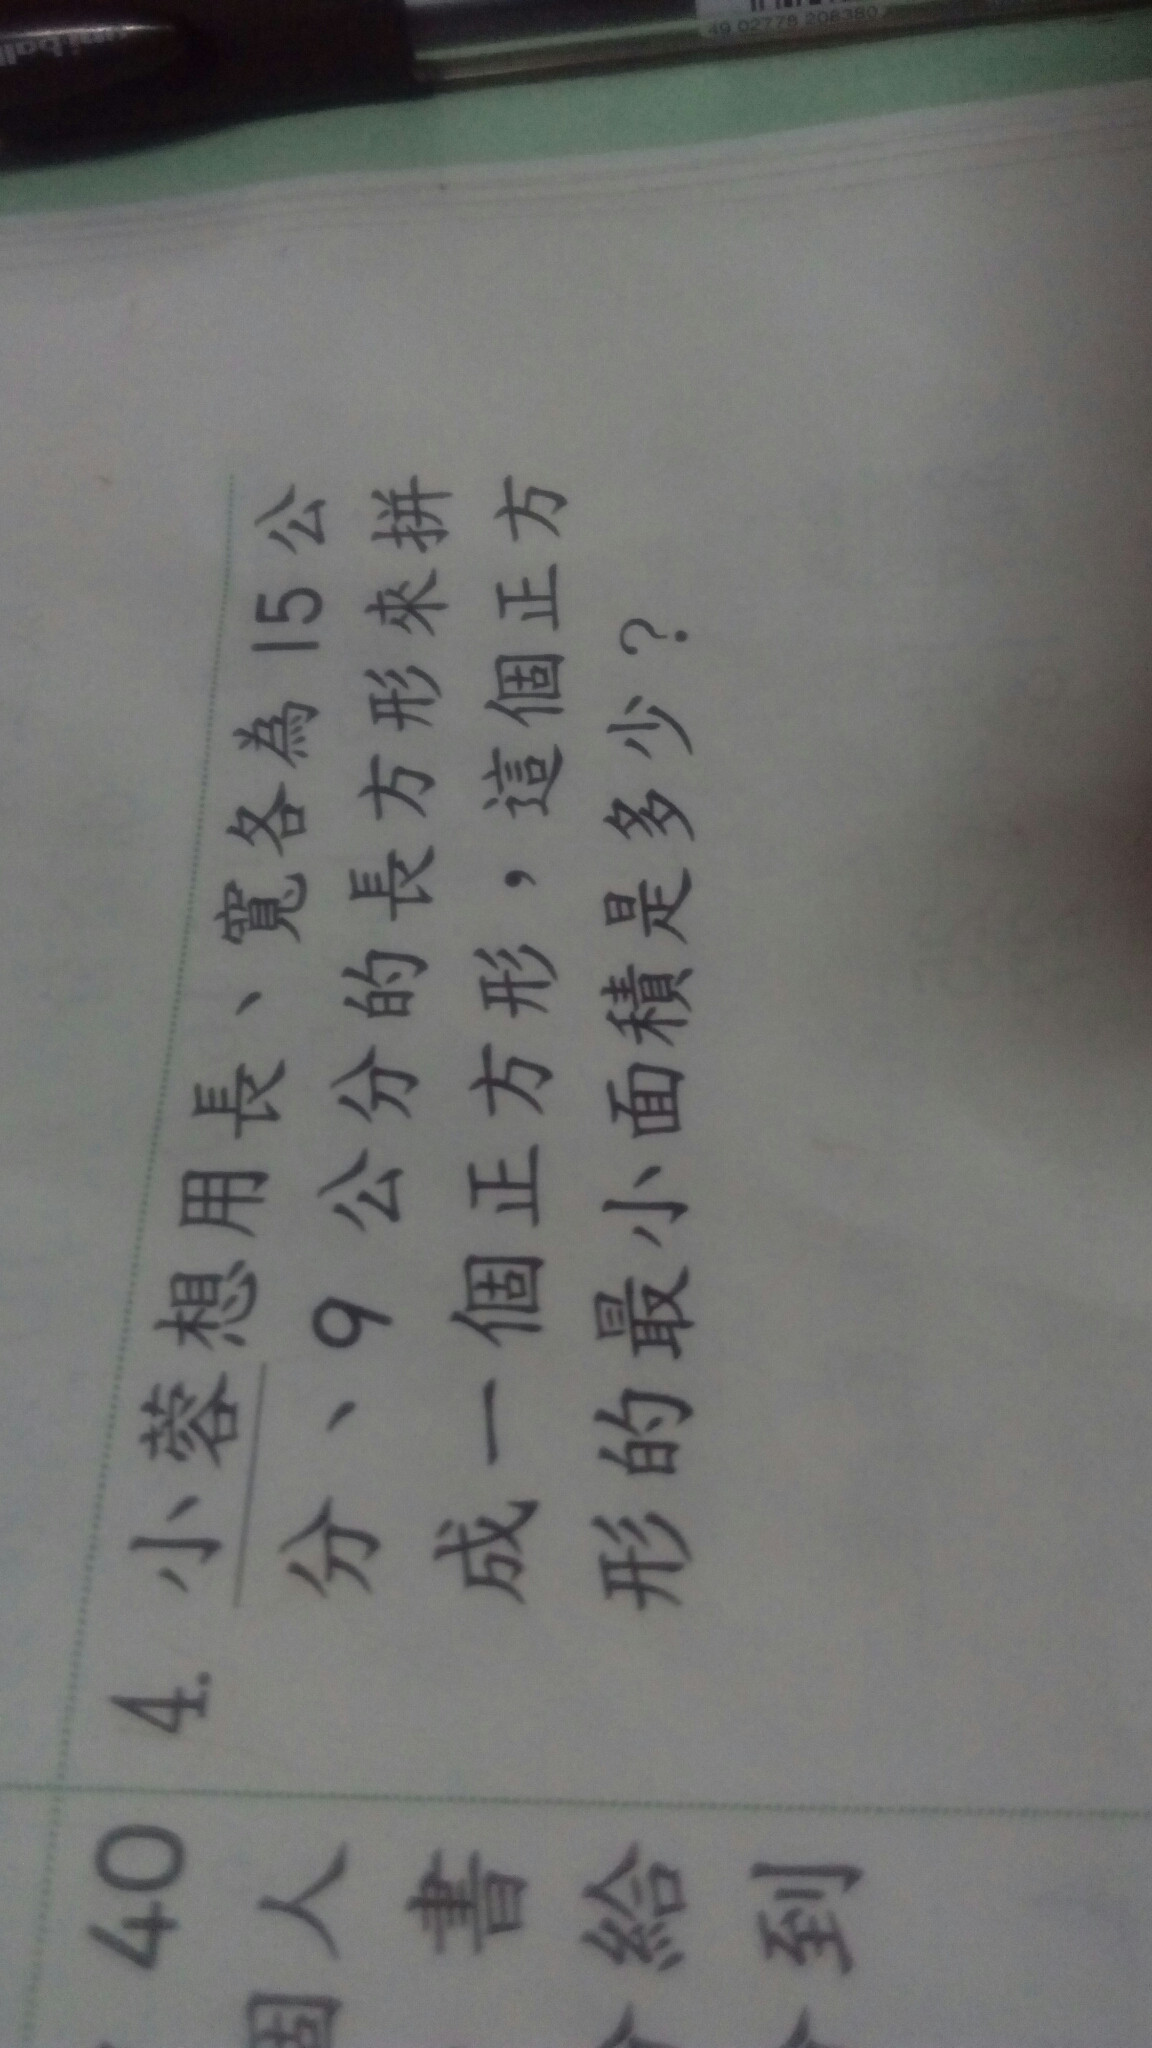 4. 小蓉想用長、寬各為 15 公
分、9 公分的長方形來拼
成一個正方形，這個正方
形的最小面積是多少？
40
個人
書
給
到
49 02778 208380